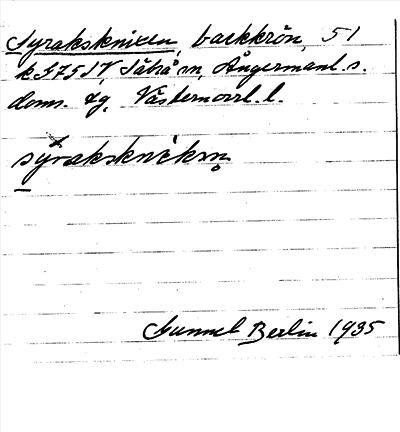 Syraksknixen, backkrön, 51
k G75 IV Säbrå sn, Ångermanl. s.
doms. tg. Västernorrl. l.
syraksknèksn
Gunnel Berlin 1935